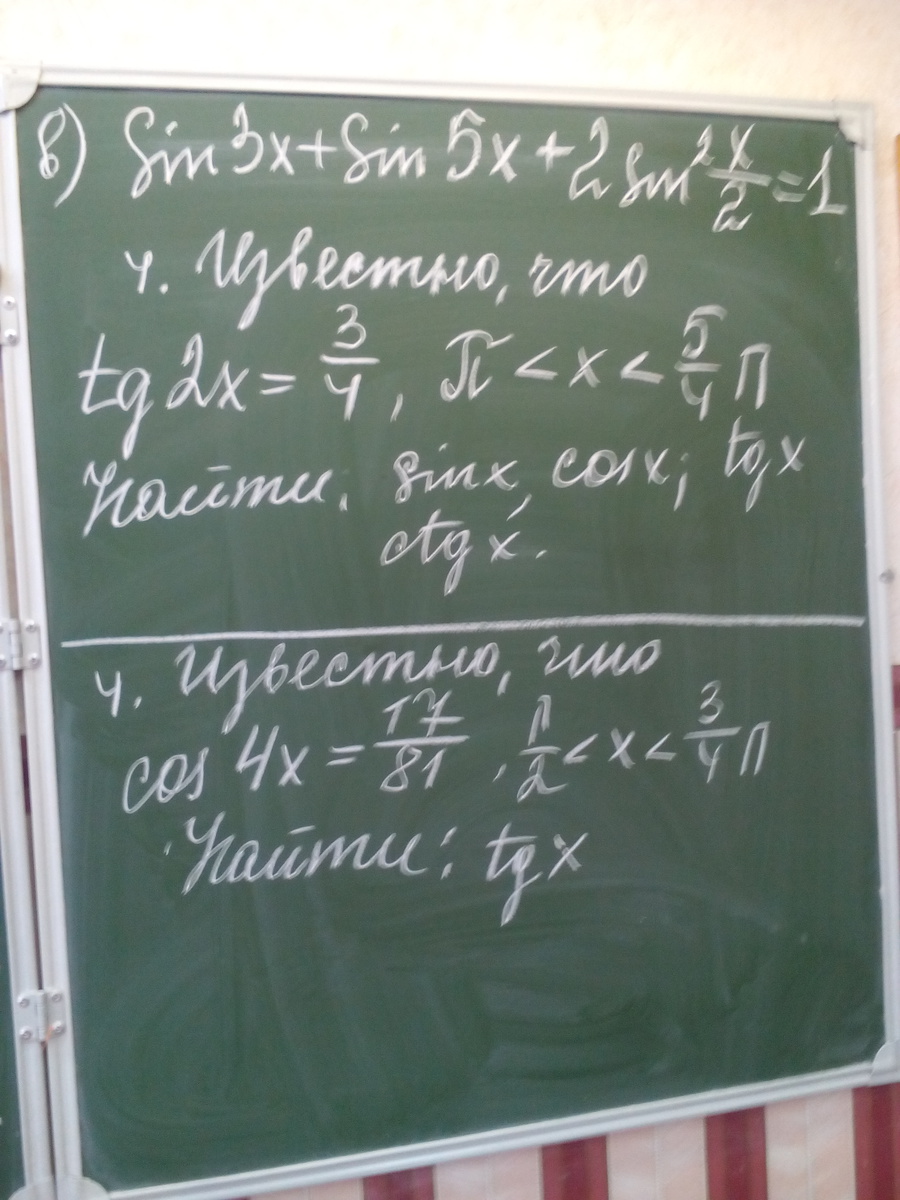 в) Sin 3x + Sin 5x + 2 Sin² x/2 = 1
4. Известно, что
tg 2x = 3/4, π < x < 5/4 π
Найти: sin x, cos x; tg x
ctg x.
4. Известно, что
cos 4x = 17/81, π/2 < x < 3/4 π
Найти: tg x